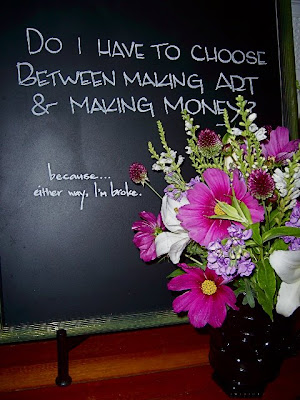 DO I HAVE TO CHOOSE
BETWEEN MAKING ART
& MAKING MONEY?
because...
either way, I'm broke.